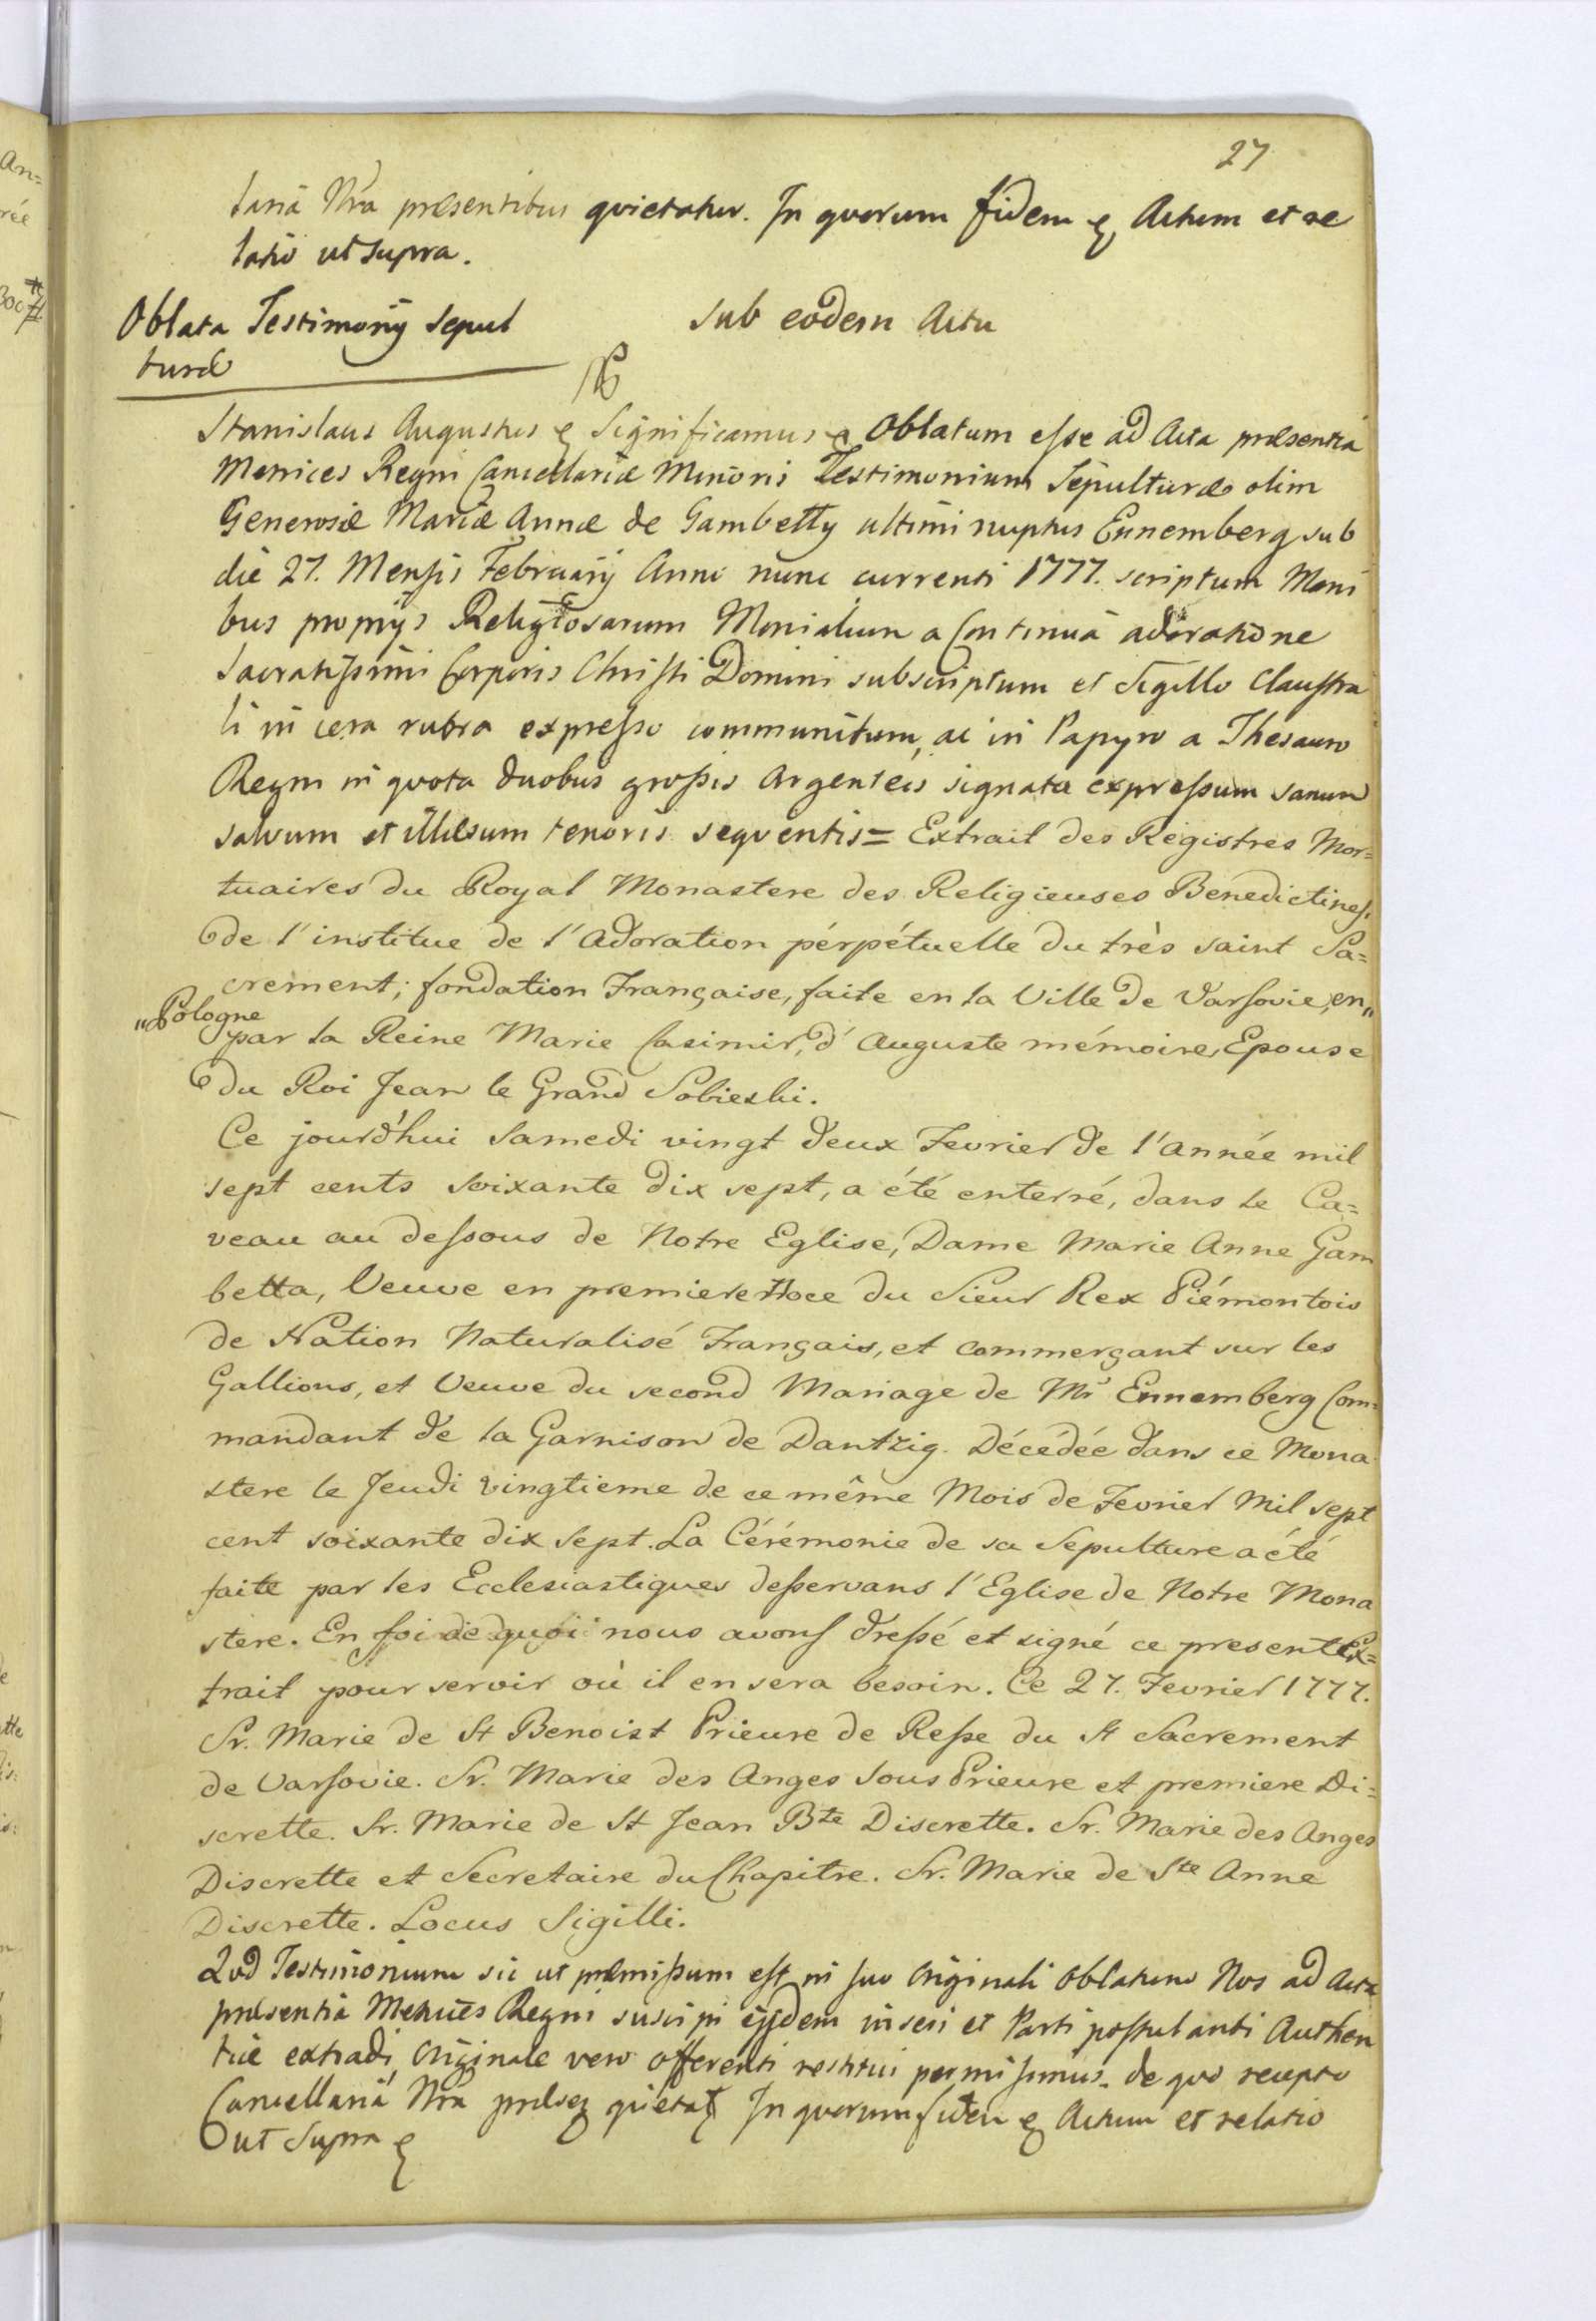 27
lariā Nrā præsentibus qvietatur. In qvorum fidem & Actum et re
latio ut supra.
Oblata Testimonij Sepul
turæ
Sub eodem Actu
Stanislaus Augustus & Significamus & Oblatum esse ad Acta præsentia
Metrices Regni Cancellariæ Minoris Testimonium Sepulturæ olim
Generosæ Mariæ Annæ de Gambetty ultimi nuptus Ennemberg sub
die 27. Mensis Februarij Anni nunc currenti 1777. scriptum Mani
bus proprijs Religiosarum Monialium a Continuâ adoratione
Sacratissimi Corporis Christi Domini subscriptum et Sigillo Claustra
li in cera rubra expresso communitum, ac in Papyro a Thesauro
Regni in qvota duobus grossis Argenteis signata expressum sanum
salvum et illæsum tenoris seqventis= Extrait des Régistres Mor=
tuaires du Royal Monastere des Religieuses Benedictines.
de l'institue de l'Adoration pérpétuelle du très saint Sa=
crement; fondation Française, faite en la Ville de Varsovie, en„
„Pologne
par la Reine Marie Casimir, d'Auguste mémoire, Epouse
du Roi Jean le Grand Sobieski.
Ce jourd'hui Samedi vingt deux Fevrier de l'année mil
sept cents soixante dix sept, a été enterré, dans le Ca=
veau au dessous de Notre Eglise, Dame Marie Anne Gam
betta, Veuve en premiere Noce du Sieur Rex Piémontois
de Nation Naturalisé Français, et commerçant sur les
Gallions, et Veuve du second Mariage de Mr Ennemberg Com=
mandant de la Garnison de Dantzig. Décédée dans ce Mona
stere le Jeudi vingtieme de ce même Mois de Fevrier Mil sept
cent soixante dix sept. La Cérémonie de sa Sepulture a été
faite par les Ecclesiastiques desservans l'Eglise de Notre Mona
stere. En foi de quoi nous avons dressé et signé ce present Ex=
trait pour servir où il en sera besoin. Ce 27. Fevrier 1777.
Sr. Marie de St Benoist Prieure de Resse du St Sacrement
de Varsovie. Sr. Marie des Anges Sous Prieure et premiere Di=
scrette. Sr. Marie de St Jean Bte Discrette. Sr. Marie des Anges
Discrette et Secretaire du Chapitre. Sr. Marie de Ste Anne
Discrette. Locus Sigilli.
Qvod Testimonium sic ut præmissum est in suo Originali Oblatum Nos ad Acta
præsentia Metrices Regni suscipi ijsdem inseri et Parti postulanti Authen
tice extradi, Originale vero Offerenti restitui permisimus. de qvo recepto
Cancellaria Nrā præsen qvietat In qvorum fidem & Actum et relatio
ut Supra &